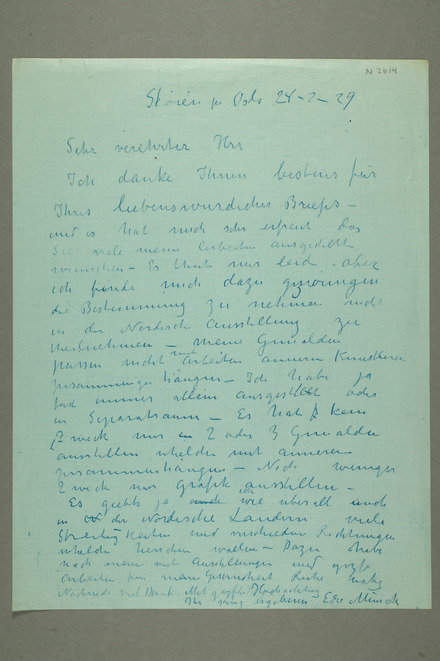 N 2614
Skøien pr Oslo 24-2-29
Sehr verehrter Herr
Ich danke Ihnen bestens für
Ihres liebenswürdiches Briefs –
und es hat mich sehr erfreut das
Sie viele meine Arbeiten ausgestellt
wünschen – Es thut mir leid aber
ich finde mich dazu gezwungen
die Bestemmung zu nehmen nicht
in der Nordische Ausstellung zu
theilnehmen – meine Gemälden
passen nicht mit Arbeiten anderen Kunstleren
zusammungen hängen – Ich habe ja
fast immer allein ausgestellt oder
in Separatraum – Es hat kein
Zweck nur 2 oder 3 Gemälden
ausstellen whelden mit anderen
zusammenhängen – Noch weniger
Zweck nur Grafik ausstellen –
Es giebts ja wie überall auch
in der Nordische Landern viele
Streitigkeiten und Richtungen
whelde herschen wollen – Dazu habe
nach mein viele Ausstellungen und
Arbeiten für mein Gesundheit Ruhe nötig
Nochmals viel Dank. Mit Hochachtung
Ihr ganz ergebenen Edv Munch